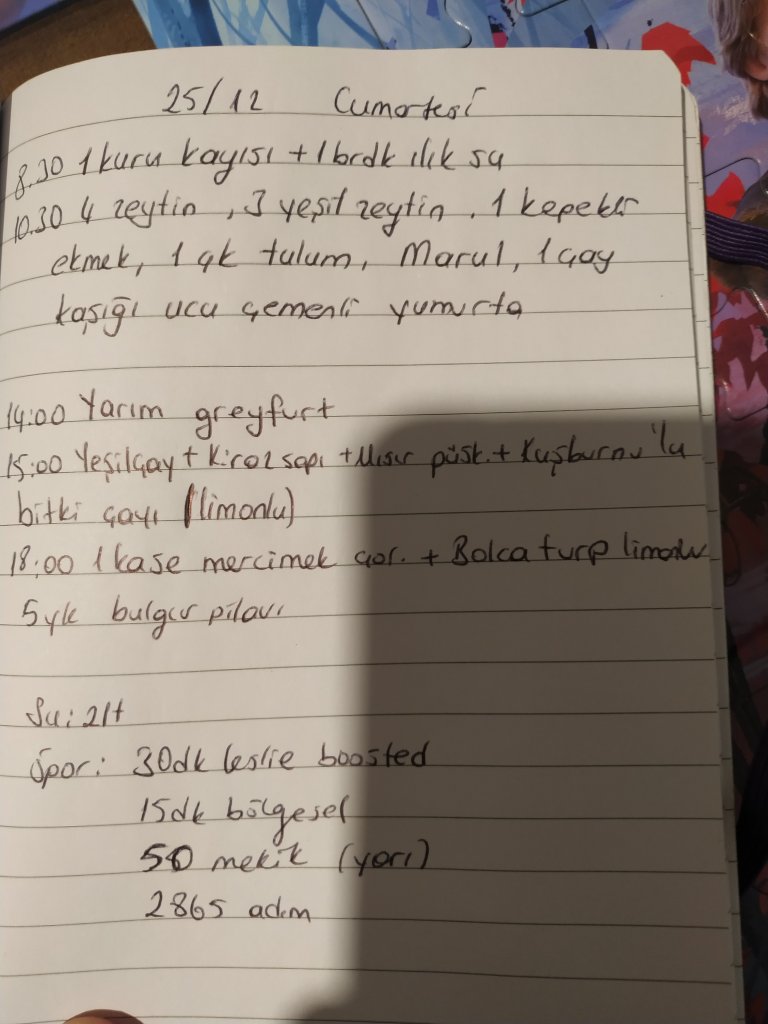 25/12 Cumartesi
8.30 1 kuru kayısı + 1 brdk ılık su
10.30 4 zeytin, 3 yeşil zeytin, 1 kepekli
ekmek, 1 çk tulum, Marul, 1 çay
kaşığı ucu çemenli yumurta
14:00 Yarım greyfurt
15:00 Yeşilçay + Kiraz sapı + Mısır püsk. + Kuşburnu'lu
bitki çayı (limonlu)
18:00 1 kase mercimek çor. + Bolca turp limonlu
5 yk bulgur pilavı
Su: 2 lt
Spor: 30dk leslie boosted
15dk bölgesel
50 mekik (yarı)
2865 adım